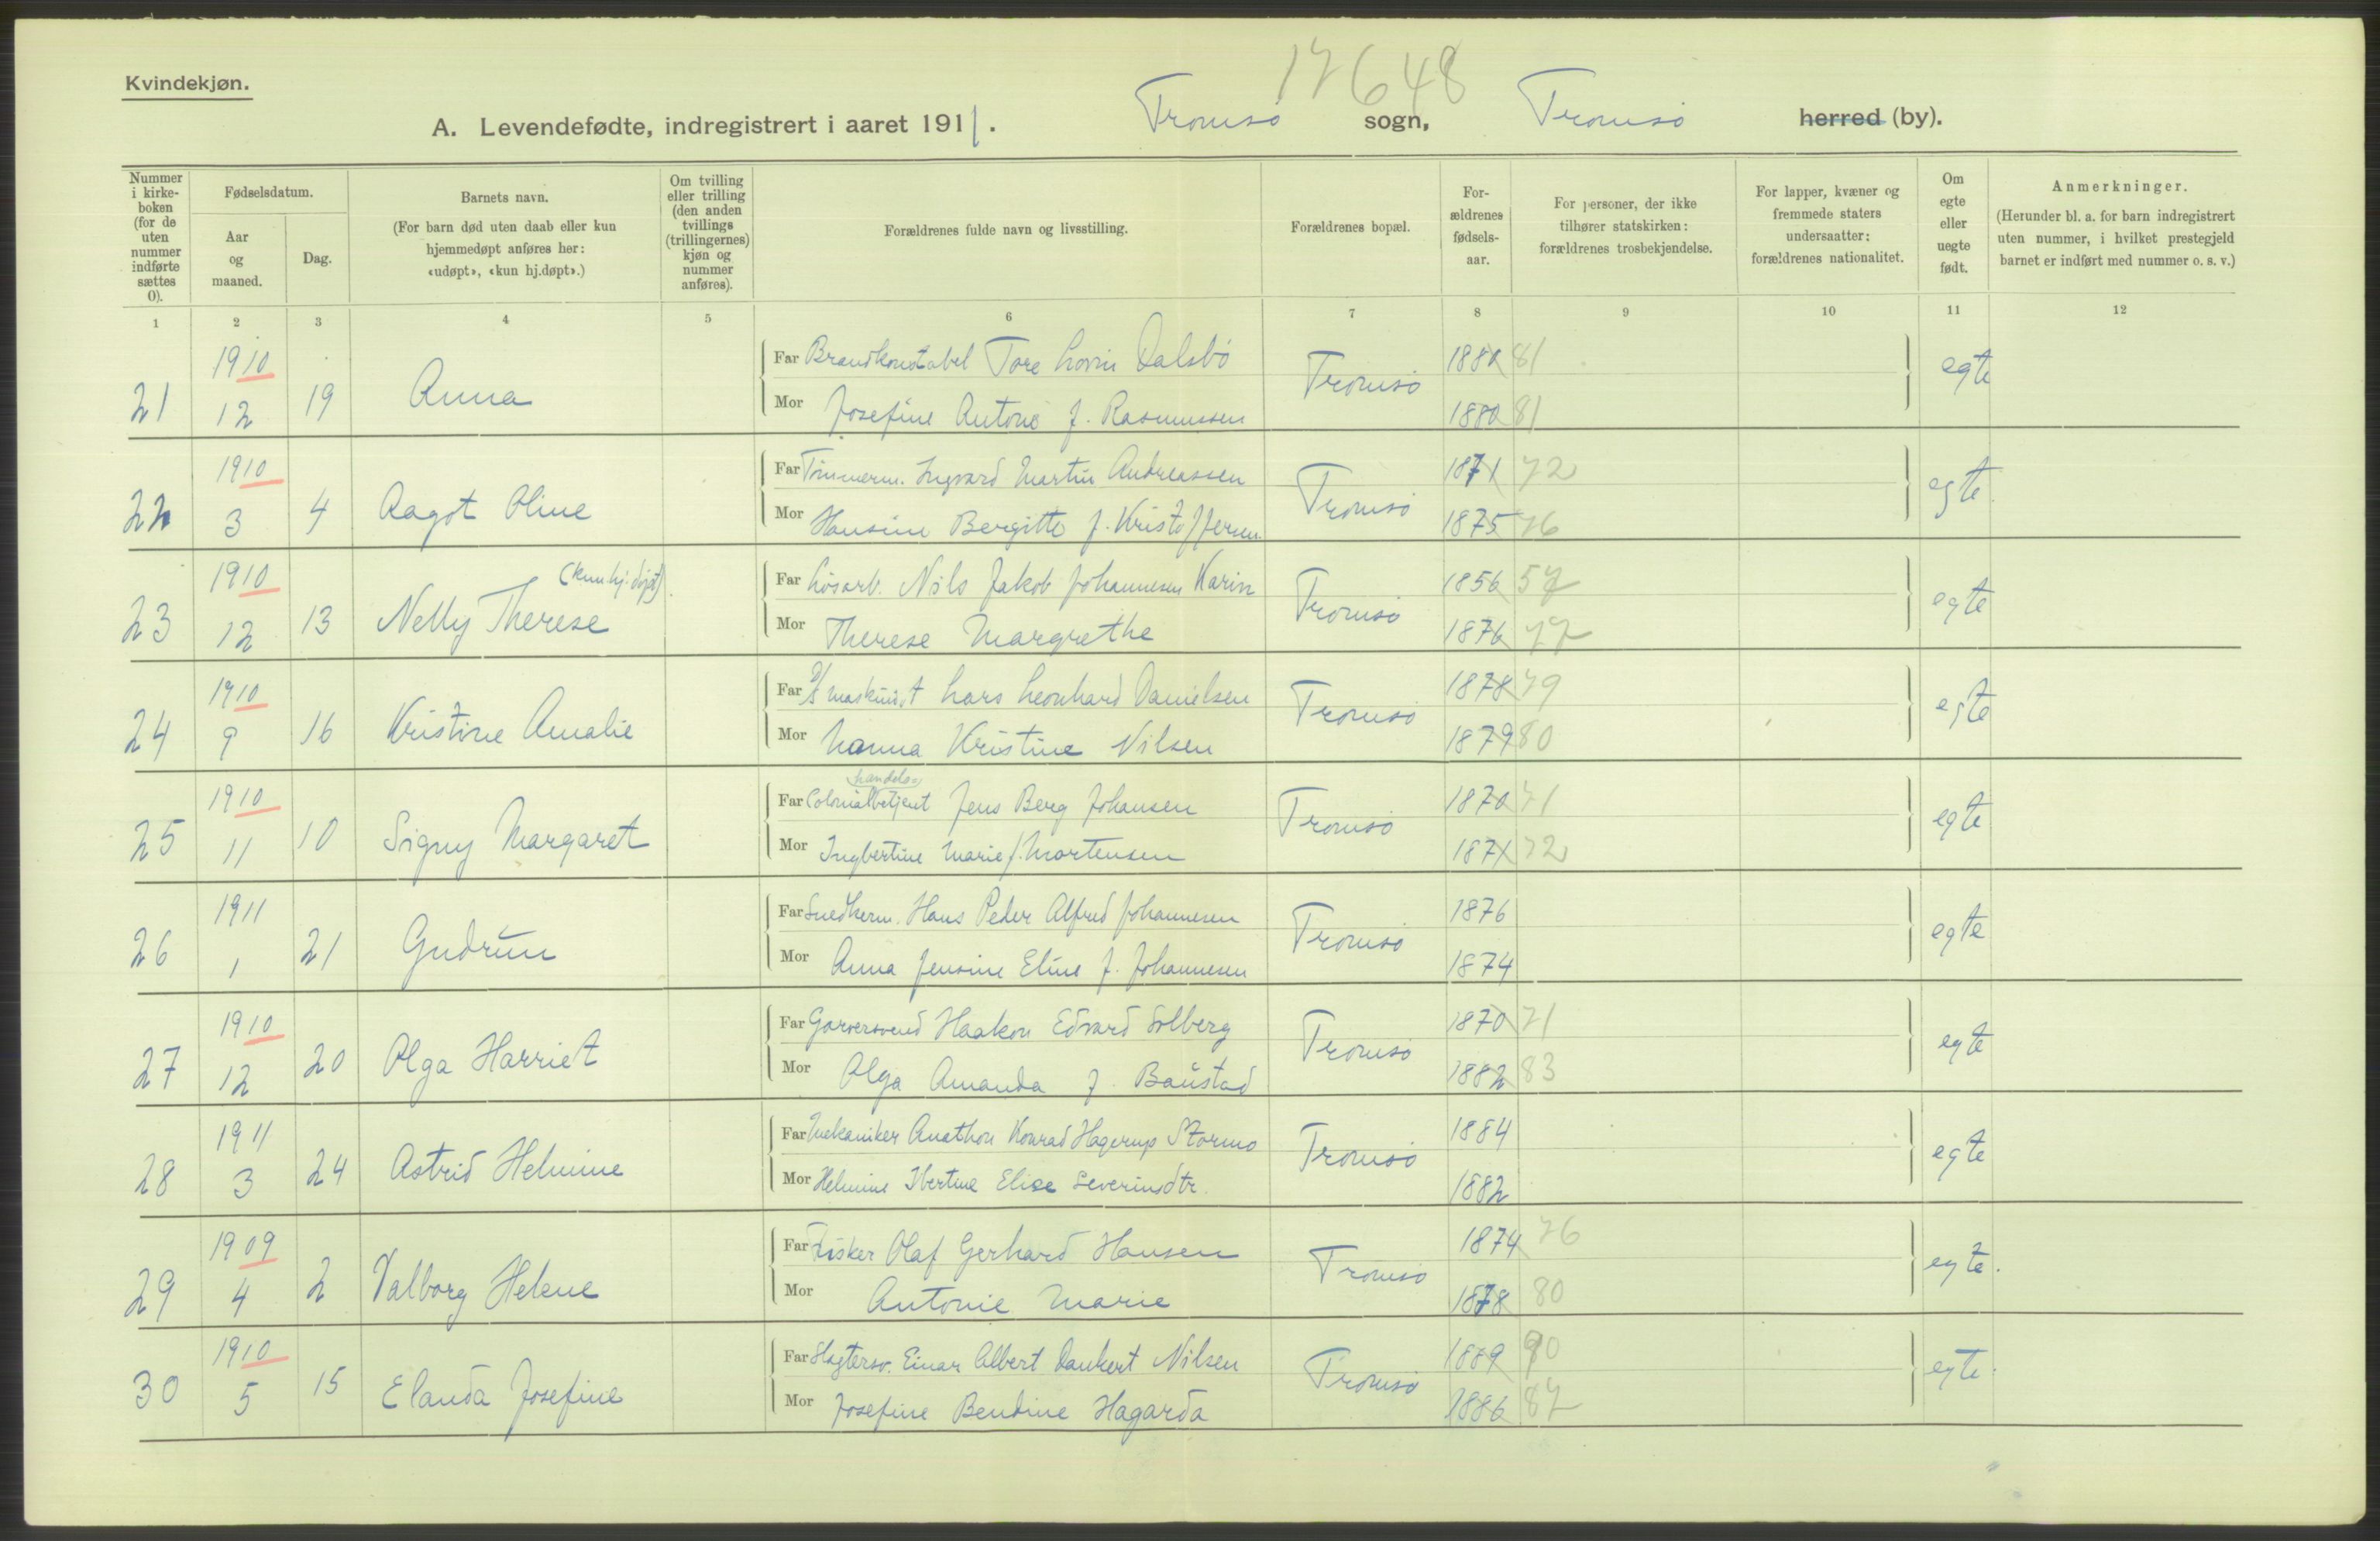 17648
Kvindekjøn.
A. Levendefødte, indregistrert i aaret 1911. Tromsø sogn, Tromsø herred (by).
Nummer i kirke-boken (for de uten nummer indførte sættes 0).
Fødselsdatum.
Aar og maaned.
Dag.
Barnets navn.
(For barn død uten daab eller kun hjemmedøpt anføres her: «udøpt», «kun hj.døpt».)
Om tvilling eller trilling (den anden tvillings (trillingernes) kjøn og nummer anføres).
Forældrenes fulde navn og livsstilling.
Forældrenes bopæl.
For-ældrenes fødsels-aar.
For personer, der ikke tilhører statskirken: forældrenes trosbekjendelse.
For lapper, kvæner og fremmede staters undersaatter: forældrenes nationalitet.
Om egte eller uegte født.
Anmerkninger.
(Herunder bl. a. for barn indregistrert uten nummer, i hvilket prestegjeld barnet er indført med nummer o. s. v.)
1 2 3 4 5 6 7 8 9 10 11 12
21 1910 12 19 Anna
Far Brandkonstabel Tore Dalsbø Tromsø 1880 81 egte
Mor Josefine Antonie f. Rasmussen 1880 81
22 1910 3 4 Aagot Oline
Far Tømmerm. Ingvard Martin Andreassen Tromsø 1871 72 egte
Mor Hansine Bergitte f. Kristoffersen 1875 76
23 1910 12 13 Nelly Therese (kun hj. døpt)
Far Løsarb. Nils Jakob Johannesen Tromsø 1856 57 egte
Mor Therese Margrethe 1876 77
24 1910 9 16 Kristine Amalie
Far D/S maskinist Lars Leonhard Danielsen Tromsø 1878 79 egte
Mor Hanna Kristine Nilsen 1879 80
25 1910 11 10 Signy Margaret
handels=
Far Colonialbetjent Jens Berg Johansen Tromsø 1870 71 egte
Mor Ingbertine Marie f. Mortensen 1871 72
26 1911 1 21 Gudrun
Far Snedkerm. Hans Peder Alfred Johannesen Tromsø 1876 egte
Mor Anna Jensine Eline f. Johannesen 1874
27 1910 12 20 Olga Harriet
Far Garversvend Haakon Edvard Solberg Tromsø 1870 71 egte
Mor Olga Amanda f. Baustad 1882 83
28 1911 3 24 Astrid Helmine
Far Mekaniker Anathon Konrad Hagerup Stormo Tromsø 1884 egte
Mor Helmine Ibertine Elise Severinsdtr. 1882
29 1909 4 2 Valborg Helene
Far Fisker Olaf Gerhard Hansen Tromsø 1874 76 egte.
Mor Antonie Marie 1878 80
30 1910 5 15 Elanda Josefine
Far Slagtersv. Einar Albert Dankert Nilsen Tromsø 1889 90 egte.
Mor Josefine Bendine Hagarda 1886 87